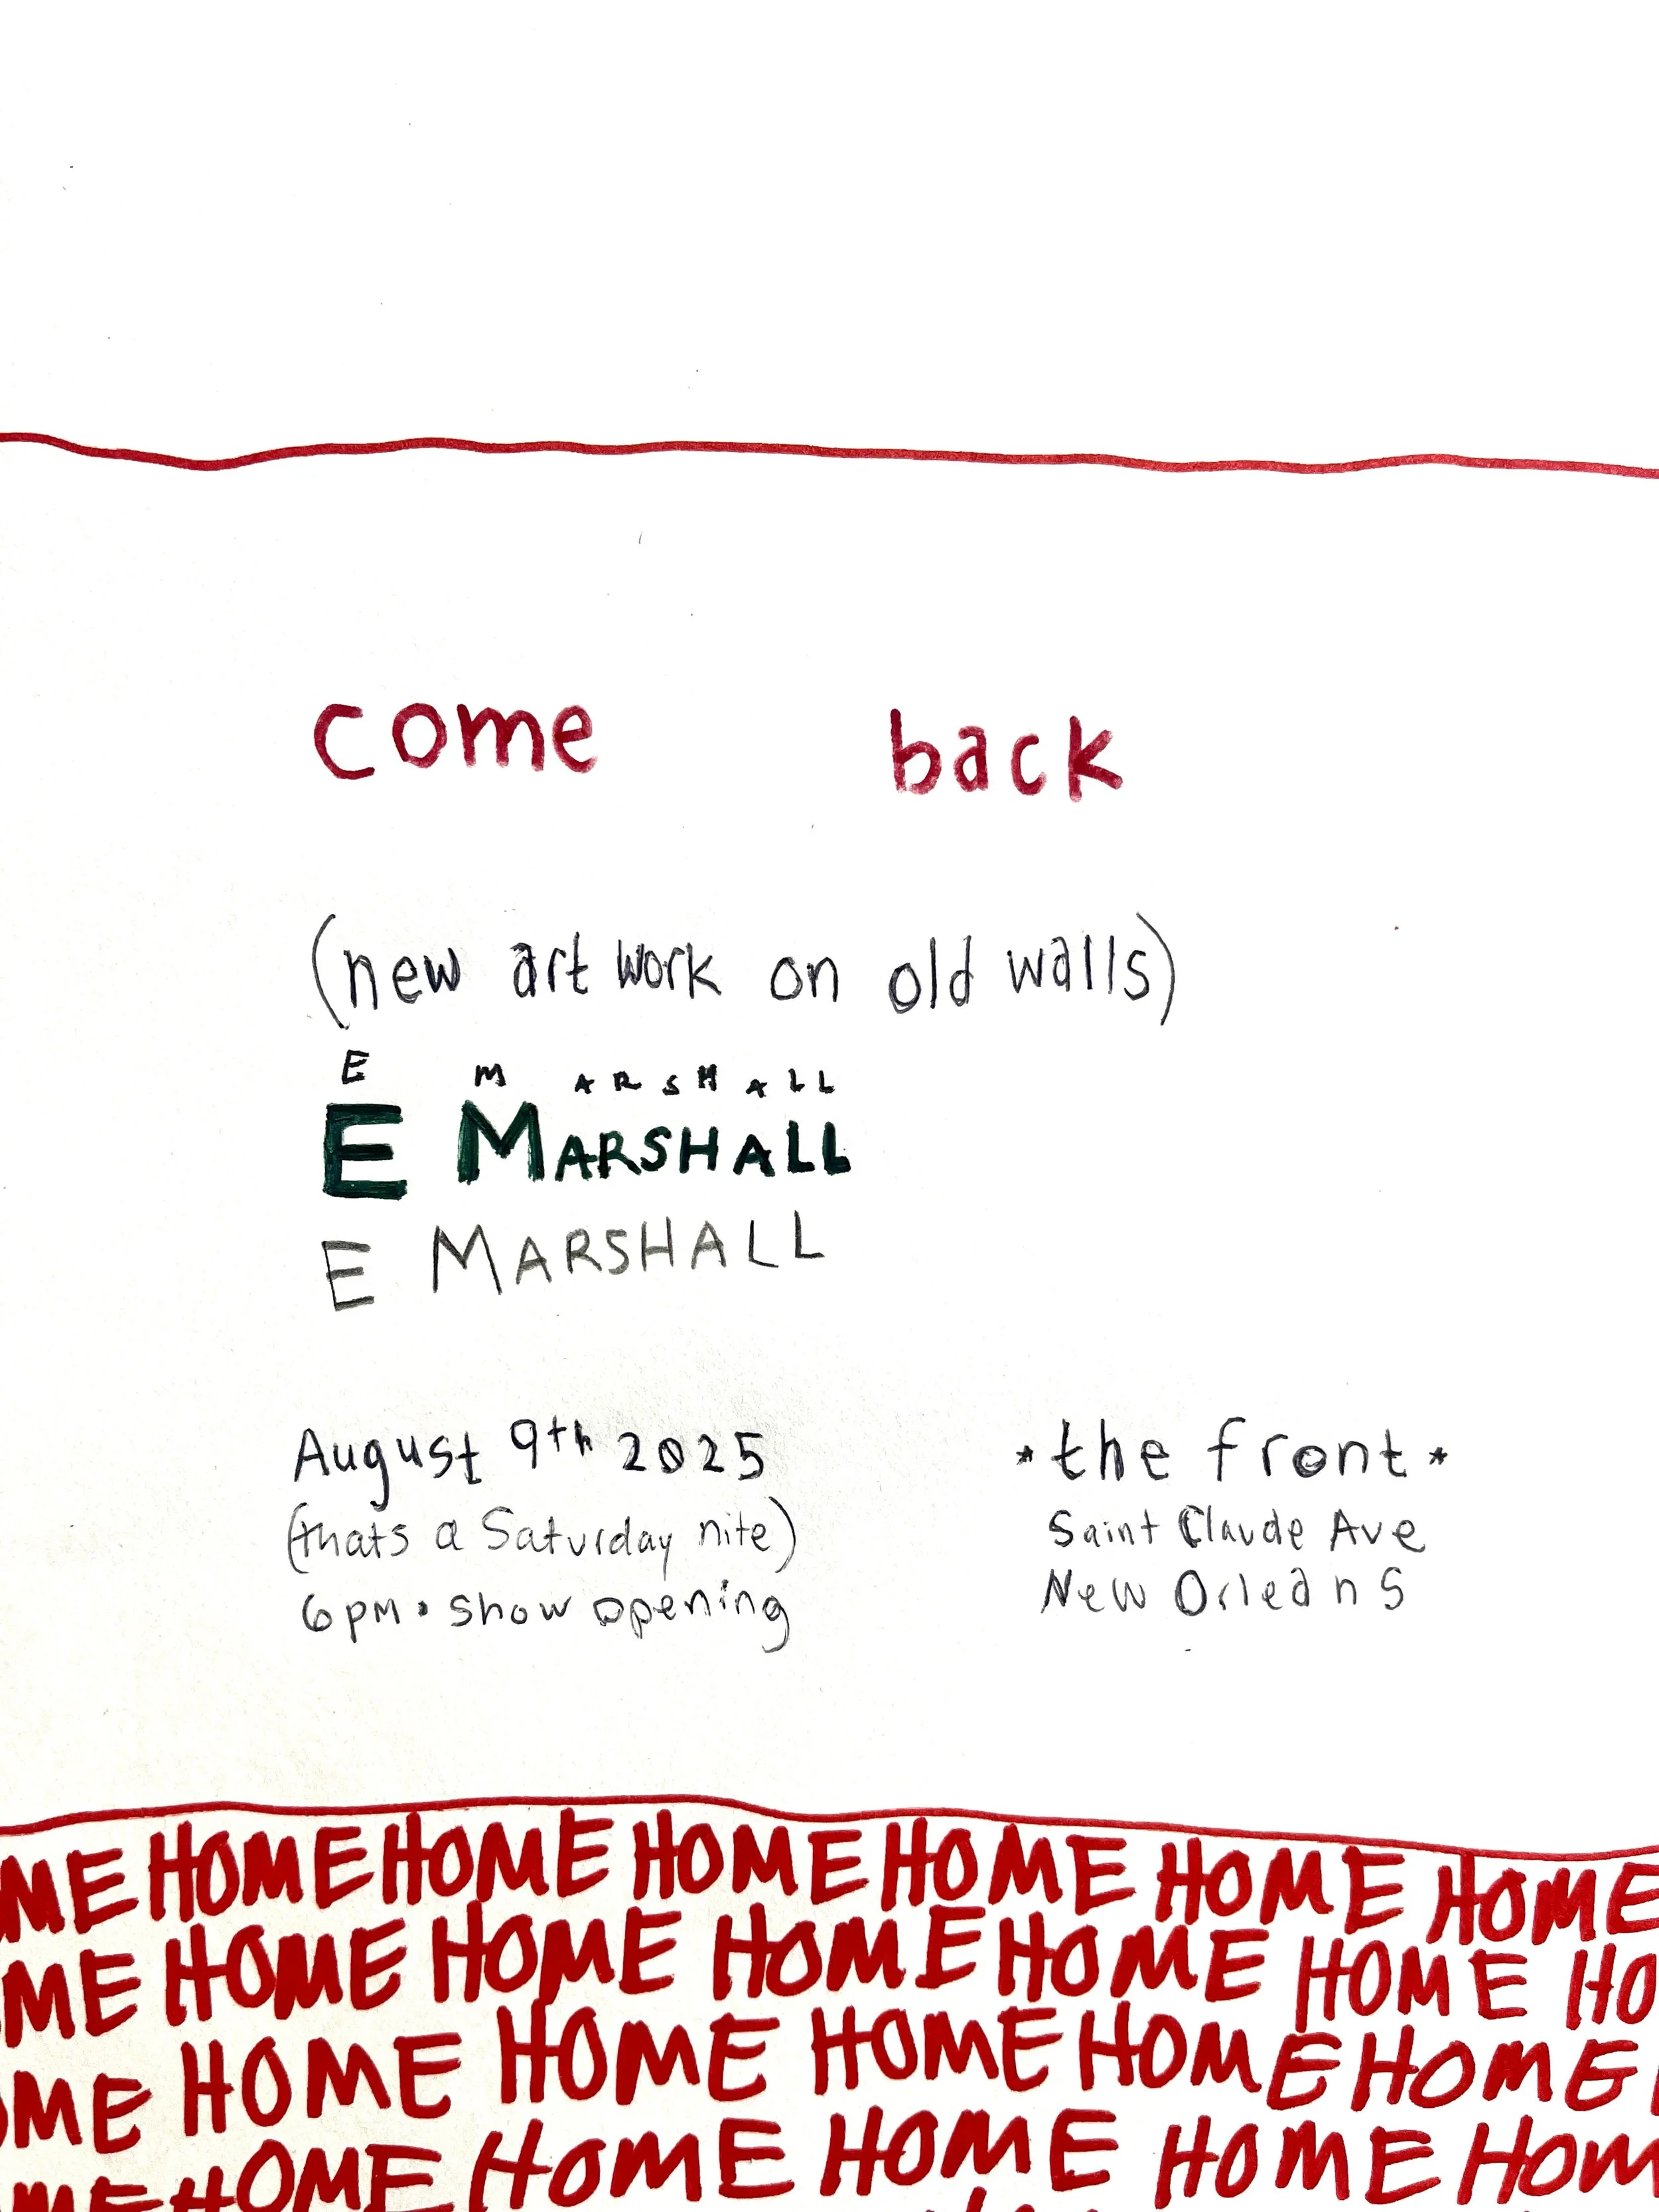 come back
(new art work on old walls)
E MARSHALL
E MARSHALL
E MARSHALL
August 9th 2025
(thats a Saturday nite)
6pm • show opening
* the front *
Saint Claude Ave
New Orleans
ME HOME HOME HOME HOME HOME HOME
ME HOME HOME HOME HOME HOME HO
OME HOME HOME HOME HOME HOME
ME HOME HOME HOME HOME HOM